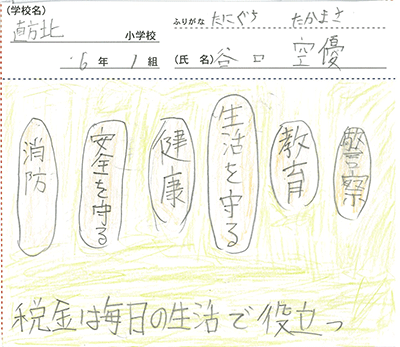 (学校名)
直方北 小学校
6年 1組
ふりがな たにぐち たかまさ
(氏名) 谷口 空優
消防
安全を守る
健康
生活を守る
教育
警察
税金は毎日の生活で役立つ